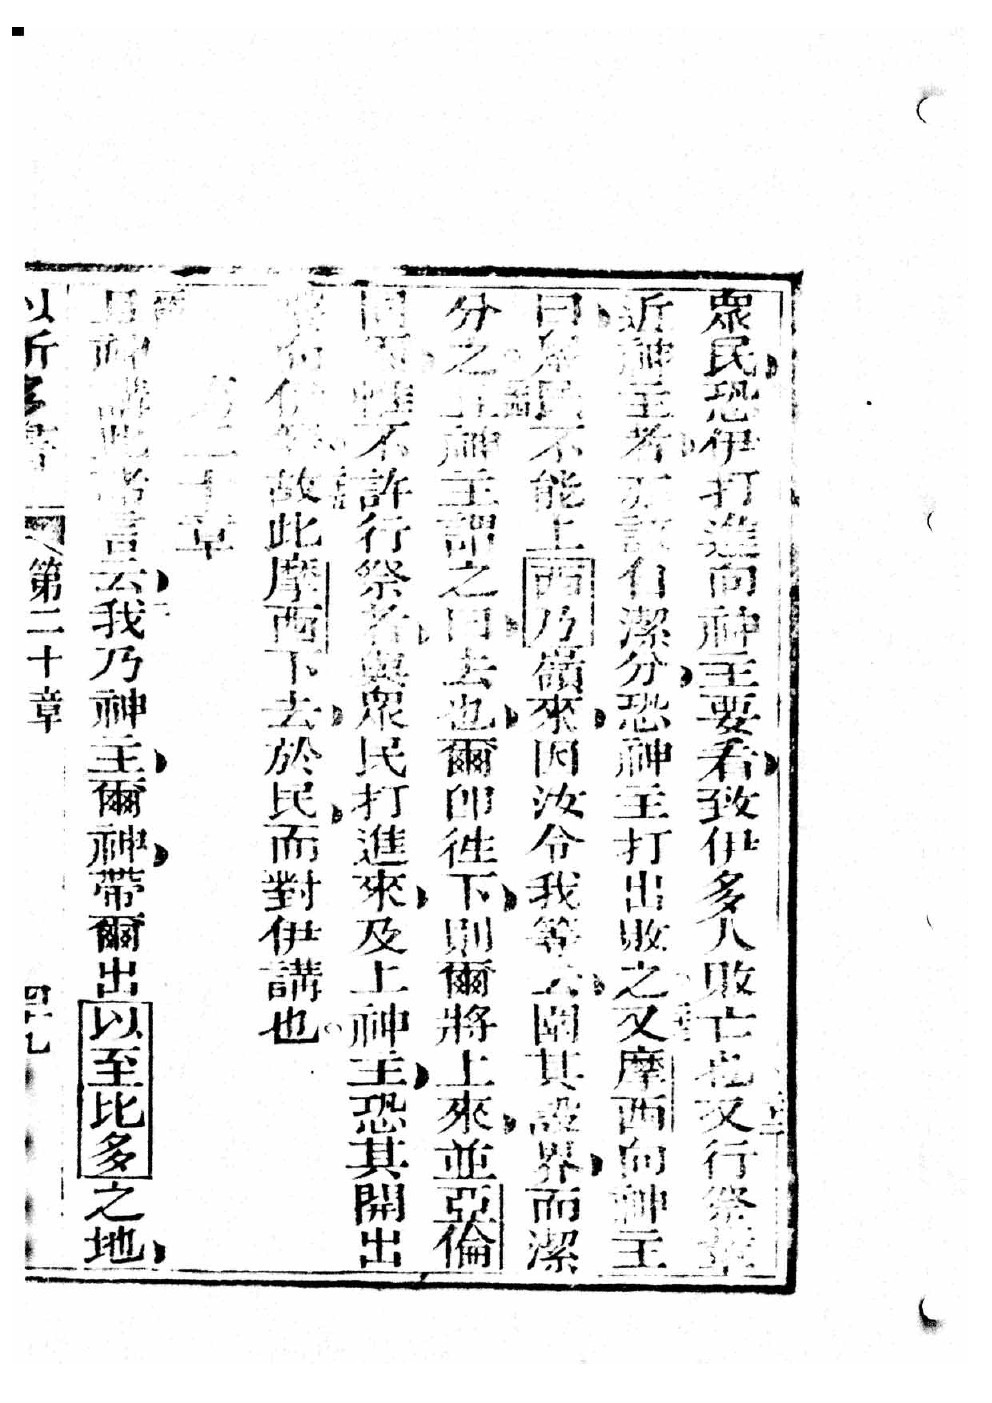 眾民恐伊打進向神主要看致伊多人敗亡也又行祭輩
近神主者亦該自潔分恐神主打出敗之又摩西向神主
曰眾民不能上西乃嶺來因汝令我等云圍其設界而潔
分之且神主謂之曰去也爾即徃下則爾將上來並亞倫
同不惟不許行祭者與眾民打進來及上神主恐其開出
伊等故此摩西下去於民而對伊講也
第二十章
且神講此諸言云我乃神主爾神帶爾出以至比多之地
以所多書 第二十章 四十九